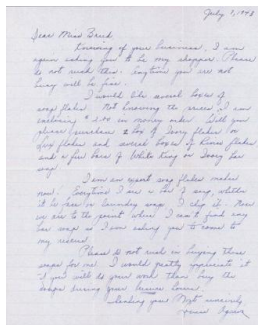 July 1, 1943
Dear Miss Breed,
Knowing of your business, I am
again asking you to be my shopper. Please
do not rush this. Anytime you are not
busy will be fine.
I would like several boxes of
soap flakes. Not knowing the prices I am
enclosing $ in money order. Will you
please purchase 2 box of Ivory flakes or
Lux flakes and several boxes of Rinso flakes
and a few bars of White King or Ivory bar
soap.
I am an expert soap flakes maker
now. Everytime I see a bar of soap whether
it be face or laundry soap I chip it. Now
we are to the point where I can't find any
bar soap so I am asking you to come to
my rescue.
Please do not rush in buying these
soaps for me. I would greatly appreciate it
if you will do your work then buy the
soaps during your leisure hours.
Thanking you Most sincerely